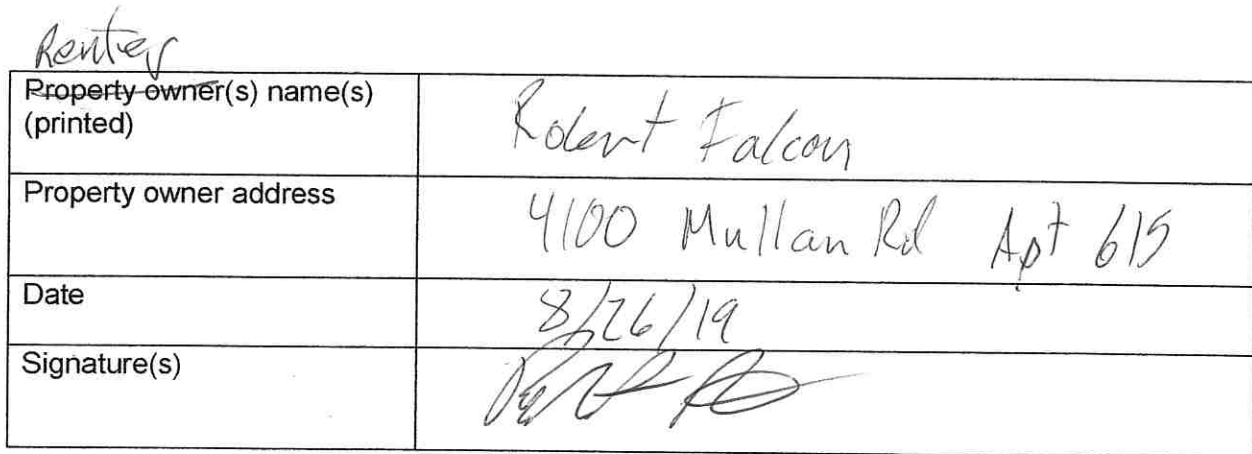 Renter
Property owner(s) name(s)
(printed)
Robert Falcon
Property owner address
4100 Mullan Rd Apt 615
Date
8/26/19
Signature(s)